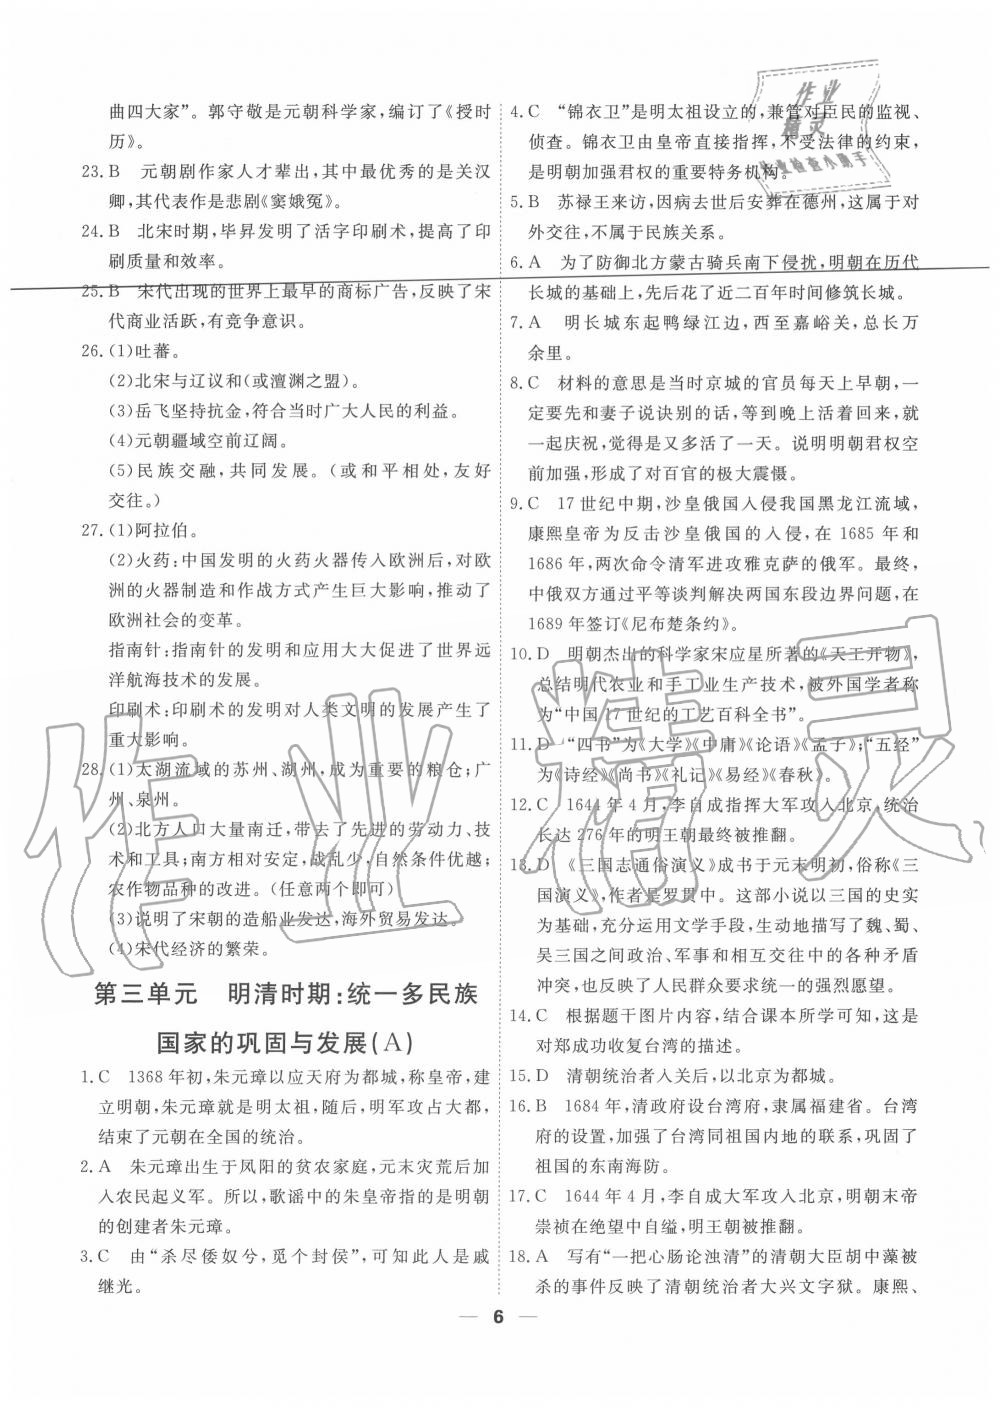 曲四大家”。郭守敬是元朝科学家,编订了《授时
历》。
23. B　元朝剧作家人才辈出,其中最优秀的是关汉
卿,其代表作是悲剧《窦娥冤》。
24. B　北宋时期,毕昇发明了活字印刷术,提高了印
刷质量和效率。
25. B　宋代出现的世界上最早的商标广告,反映了宋
代商业活跃,有竞争意识。
26. (1)吐蕃。
(2)北宋与辽议和(或澶渊之盟)。
(3)岳飞坚持抗金,符合当时广大人民的利益。
(4)元朝疆域空前辽阔。
(5)民族交融,共同发展。(或和平相处,友好
交往。)
27. (1)阿拉伯。
(2)火药:中国发明的火药火器传入欧洲后,对欧
洲的火器制造和作战方式产生巨大影响,推动了
欧洲社会的变革。
指南针:指南针的发明和应用大大促进了世界远
洋航海技术的发展。
印刷术:印刷术的发明对人类文明的发展产生了
重大影响。
28. (1)太湖流域的苏州、湖州,成为重要的粮仓;广
州、泉州。
(2)北方人口大量南迁,带去了先进的劳动力、技
术和工具;南方相对安定,战乱少,自然条件优越;
农作物品种的改进。(任意两个即可)
(3)说明了宋朝的造船业发达,海外贸易发达。
(4)宋代经济的繁荣。
第三单元　明清时期:统一多民族
国家的巩固与发展(A)
1. C　1368年初,朱元璋以应天府为都城,称皇帝,建
立明朝,朱元璋就是明太祖,随后,明军攻占大都,
结束了元朝在全国的统治。
2. A　朱元璋出生于凤阳的贫农家庭,元末灾荒后加
入农民起义军。所以,歌谣中的朱皇帝指的是明朝
的创建者朱元璋。
3. C　由“杀尽倭奴兮,觅个封侯”,可知此人是戚
继光。
4. C　“锦衣卫”是明太祖设立的,兼管对臣民的监视、
侦查。锦衣卫由皇帝直接指挥,不受法律的约束,
是明朝加强君权的重要特务机构。
5. B　苏禄王来访,因病去世后安葬在德州,这属于对
外交往,不属于民族关系。
6. A　为了防御北方蒙古骑兵南下侵扰,明朝在历代
长城的基础上,先后花了近二百年时间修筑长城。
7. A　明长城东起鸭绿江边,西至嘉峪关,总长万
余里。
8. C　材料的意思是当时京城的官员每天上早朝,一
定要先和妻子说诀别的话,等到晚上活着回来,就
一起庆祝,觉得是又多活了一天。说明明朝君权空
前加强,形成了对百官的极大震慑。
9. C　17世纪中期,沙皇俄国入侵我国黑龙江流域,
康熙皇帝为反击沙皇俄国的入侵,在1685年和
1686年,两次命令清军进攻雅克萨的俄军。最终,
中俄双方通过平等谈判解决两国东段边界问题,在
1689年签订《尼布楚条约》。
10. D　明朝杰出的科学家宋应星所著的《天工开物》,
总结明代农业和手工业生产技术,被外国学者称
为“中国17世纪的工艺百科全书”。
11. D　“四书”为《大学》《中庸》《论语》《孟子》;“五经”
为《诗经》《尚书》《礼记》《易经》《春秋》。
12. C　1644年4月,李自成指挥大军攻入北京,统治
长达276年的明王朝最终被推翻。
13. D　《三国志通俗演义》成书于元末明初,俗称《三
国演义》,作者是罗贯中。这部小说以三国的史实
为基础,充分运用文学手段,生动地描写了魏、蜀、
吴三国之间政治、军事和相互交往中的各种矛盾
冲突,也反映了人民群众要求统一的强烈愿望。
14. C　根据题干图片内容,结合课本所学可知,这是
对郑成功收复台湾的描述。
15. D　清朝统治者入关后,以北京为都城。
16. B　1684年,清政府设台湾府,隶属福建省。台湾
府的设置,加强了台湾同祖国内地的联系,巩固了
祖国的东南海防。
17. C　1644年4月,李自成大军攻入北京,明朝末帝
崇祯在绝望中自缢,明王朝被推翻。
18. A　写有“一把心肠论浊清”的清朝大臣胡中藻被
杀的事件反映了清朝统治者大兴文字狱。康熙、
— 6 —
作业
精灵
作业检查小助手
作业精灵